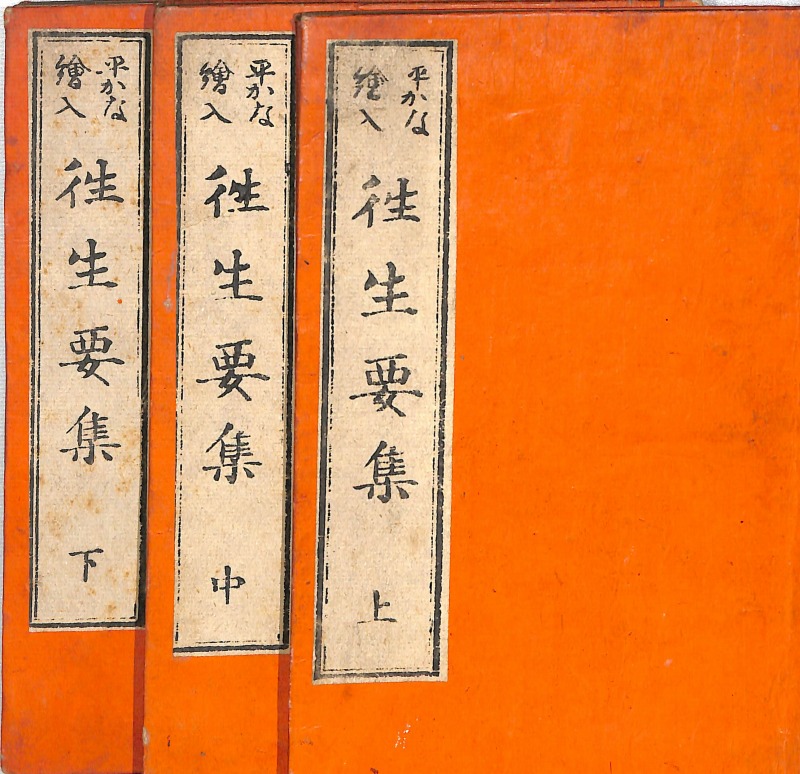 平かな
繪入
徃生要集
上
平かな
繪入
徃生要集
中
平かな
繪入
徃生要集
下